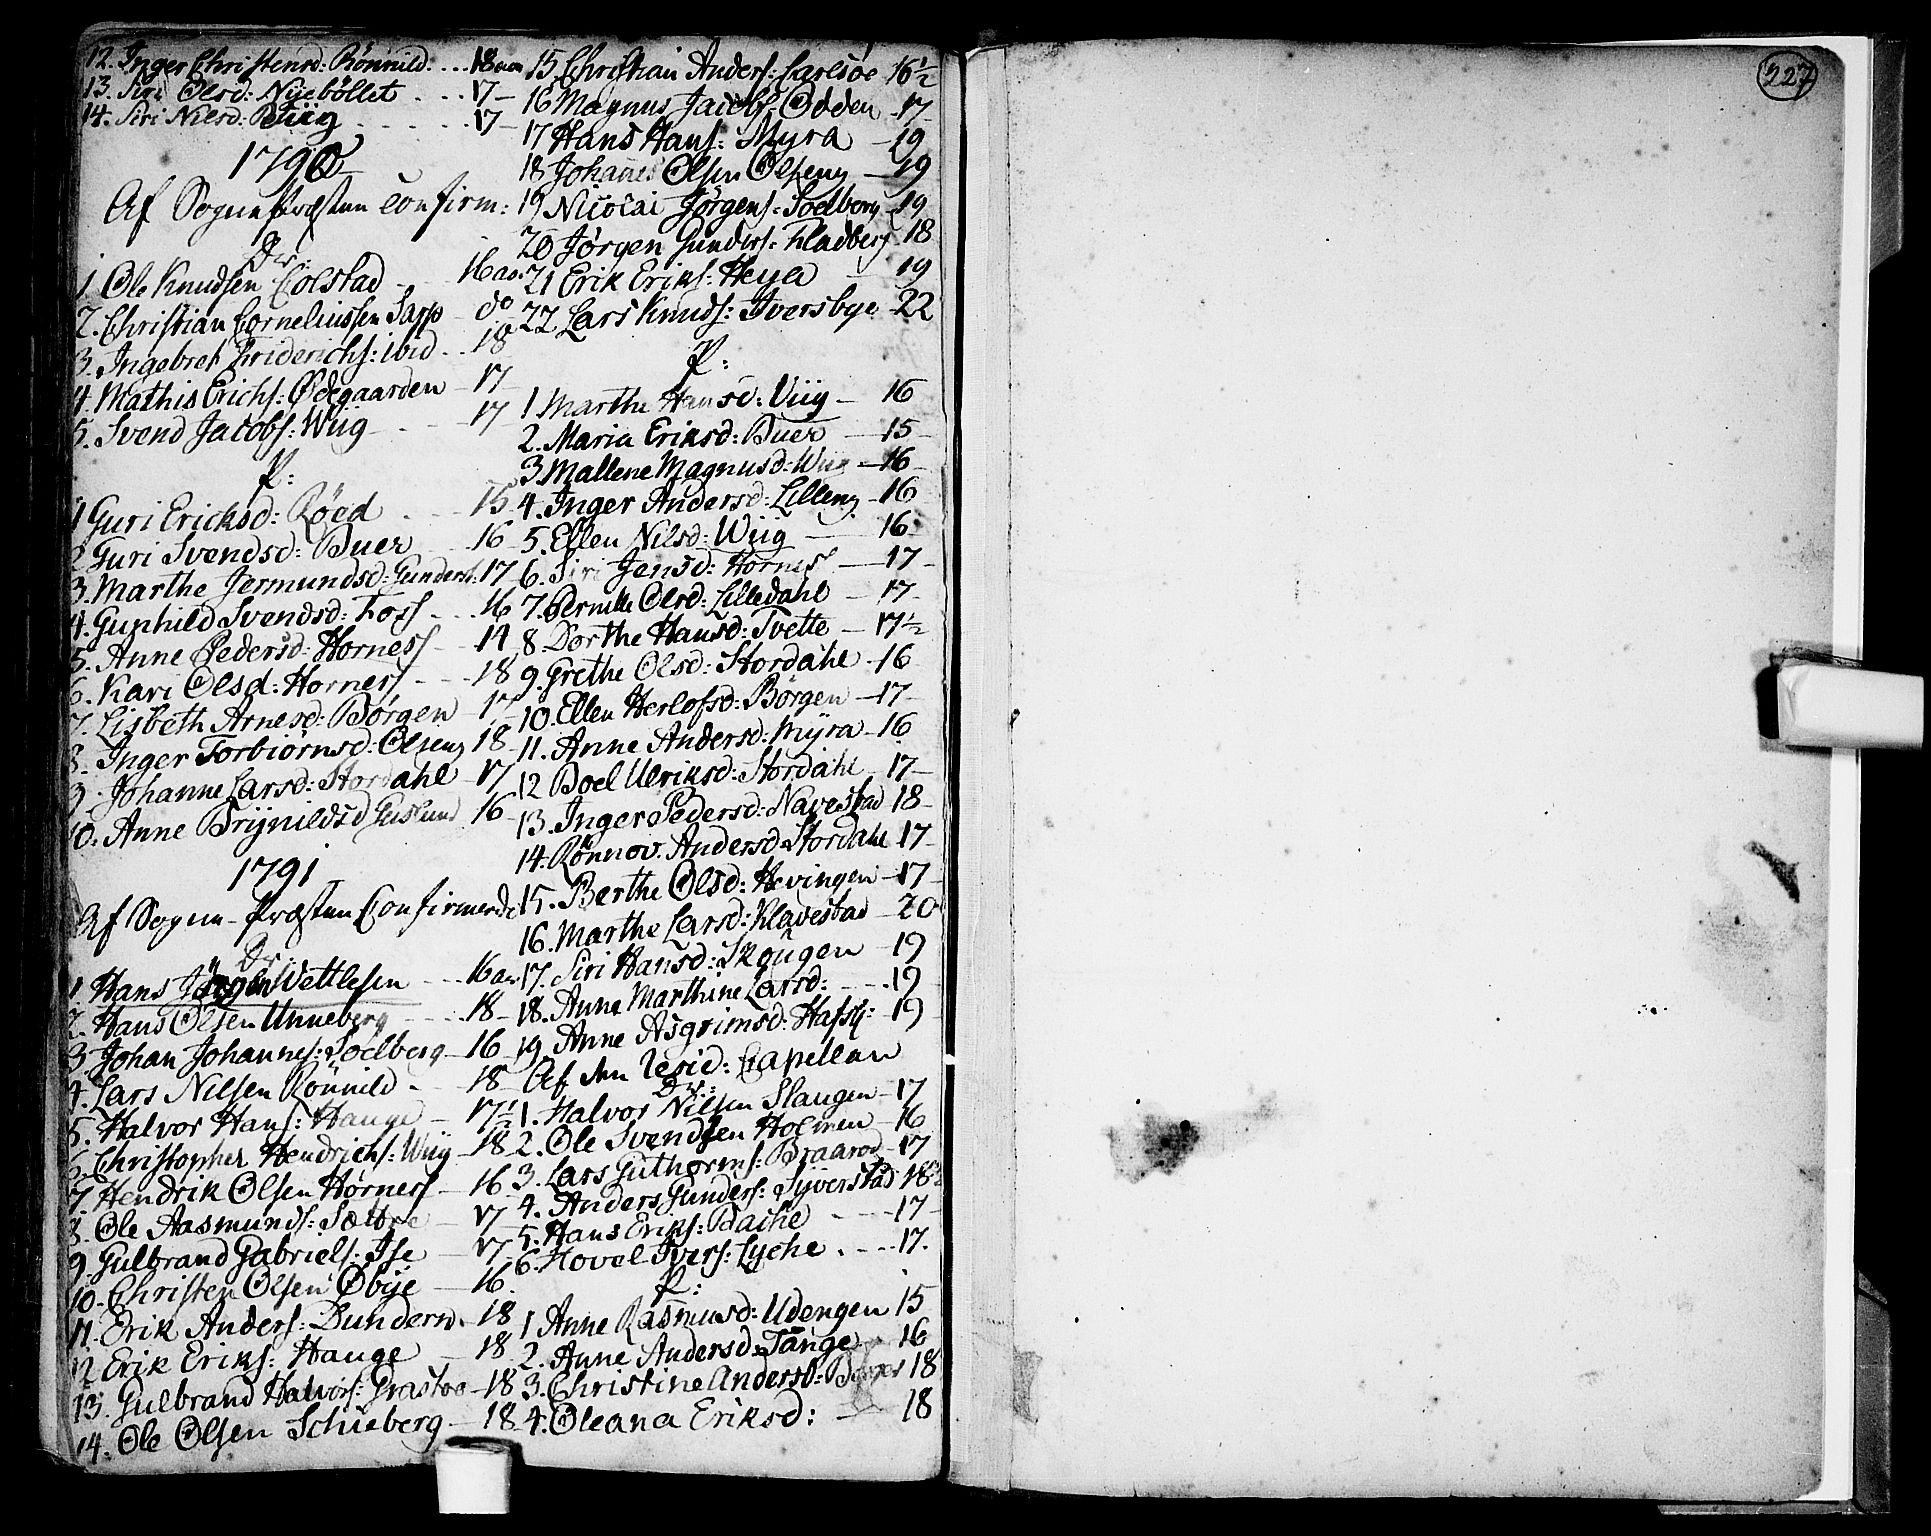 12. Inger Christensd: Rönnild. ... 18 aar
13. Siri Olsd: Nyebøllet ... 17 -
14. Siri Nilsd: Viig ..... 17 -
1790
Af Sognepræsten Confirm:
Dr:
1 Ole Knudsen Colstad - 16 aar
2. Christian Corneliussen Sapp - do
3. Ingebret Friderichs: ibid .. 18
4. Mathis Erichs: Ødegaarden - 17
5. Svend Jacobs: Wiig - ... 17
P:
1 Guri Ericksd: Röed ... 15
2 Guri Svendsd: Buer - 16 -
3. Marthe Jermundsd: Gunderst: 17
4. Gunhild Svendsd: Foss - .. 16
5. Anne Pedersd: Horness - 14
6. Kari Olsd: Horness - ... 18
7. Lisbeth Arnesd: Børgen - 17
8. Inger Torbiörnsd: Olseng 18 -
9. Johanne Larsd: Stordahl - 17
10. Anne Brynildsd Guslund 16 -
1791
Af Sogne-Præsten Confirmerde
Dr:
1 Hans Jörgen Wettlesen ... 16 aar
2. Hans Olsen Unneberg .... 18 -
3. Johan Johannes: Soelberg - 16 -
4. Lars Nilsen Rönnild - .. 18 -
5. Halvor Hans: Hauge - 17½
6. Christopher Hendrichs: Wiig - 18
7. Hendrik Olsen Hørness - 16
8. Ole Aasmunds: Sætre - 17 -
9 Gulbrand Gabriels: Ise - 17 -
10. Christen Olsen Øbye - 16.
11. Erik Anders: Dundern. 18
12 Erik Eriks: Hauge - 18
13. Gulbrand Halvors: Grastve - 18
14. Ole Olsen Schieberg - 18 -
15 Christian Anders: Carlsöe 16½
16 Magnus Jacobs: Odden - 17 -
17 Hans Hans: Myra - 19
18 Johanes Olsen Olseng - 19
19 Nicolai Jörgens: Soelberg - 19
20 Jörgen Gunders: Fladberg - 18
21 Erik Eriks: Heya - 19
22 Lars Knuds: Iversbye - 22
P:
1 Marthe Hansd: Viig - 16
2. Maria Eriksd: Buer - 15 -
3 Mallene Magnusd: Wiig - 16 -
4. Inger Andersd: Lilleng - 16
5. Ellen Nilsd: Wiig - 16 -
6. Siri Jensd: Horness - 17 -
7. Pernille Olsd: Lilledahl - 17 -
8 Dorthe Hansd: Tvette - 17½
9. Grethe Olsd: Stordahl - 16
10. Ellen Herlofsd: Börgen - 17 -
11. Anne Andersd: Myra - 16
12 Boel Ulriksd: Stordahl - 17 -
13. Inger Pedersd: Navestad 18 -
14. Rönnov. Andersd: Stordahl 17 -
15. Berthe Olsd: Hevingen - 17 -
16. Marthe Larsd: Klavestad - 20
17. Siri Hansd: Skougen - 19
18. Anne Marthine Larsd: ... 19
19 Anne Asgrimsd: Hafsl: - 19
Af den Resid: Capellan
Dr:
1. Halvor Nilsen Slaugen - 17
2. Ole Svendsen Holmen - 16
3. Lars Guthorms: Braarød - 17
4. Anders Gunders: Syverstad 18½
5. Hans Eriks: Bache ... 17 -
6. Hovel Ivers: Lyche ... 17.
P:
1 Anne Rasmusd: Udengen 15
2. Anne Andersd: Tange - 16
3. Christine Andersd: 18
4. Oleana Eriksd: - 18
327